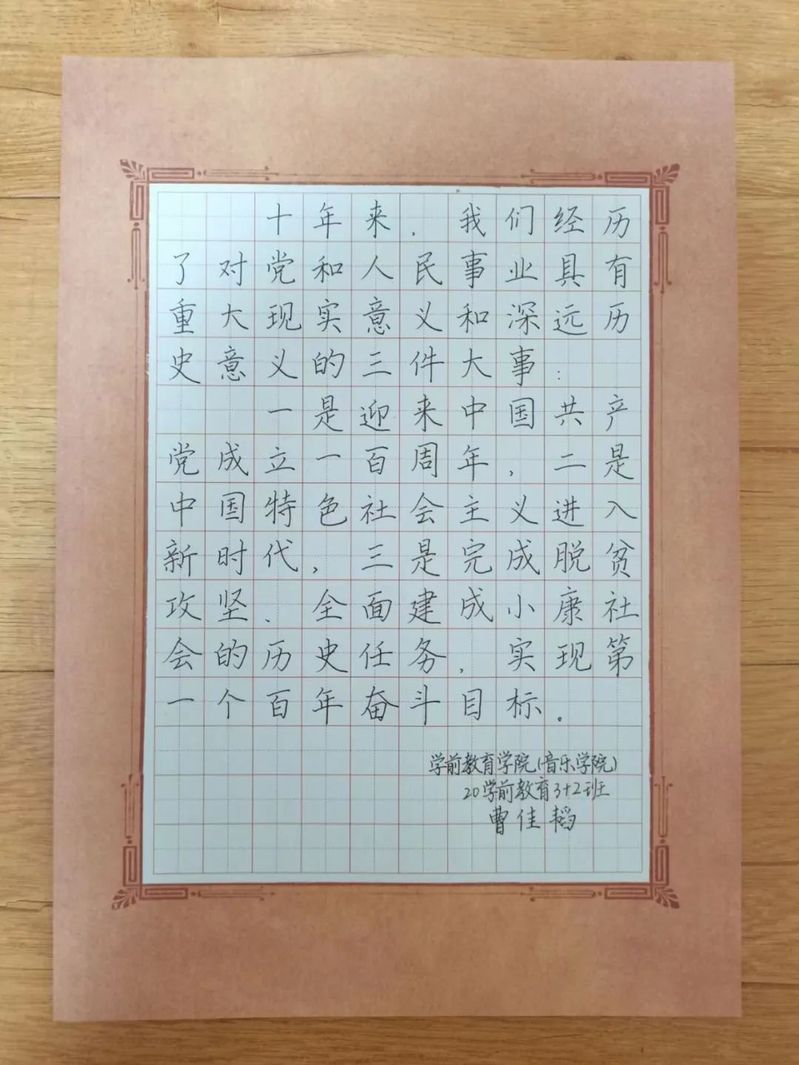 十年来，我们经历
了对党和人民事业具有
重大现实意义和深远历
史意义的三件大事：
一是迎来中国共产
党成立一百周年，二是
中国特色社会主义进入
新时代，三是完成脱贫
攻坚、全面建成小康社
会的历史任务，实现第
一个百年奋斗目标.
学前教育学院(音乐学院)
20学前教育3+2班
曹佳韬